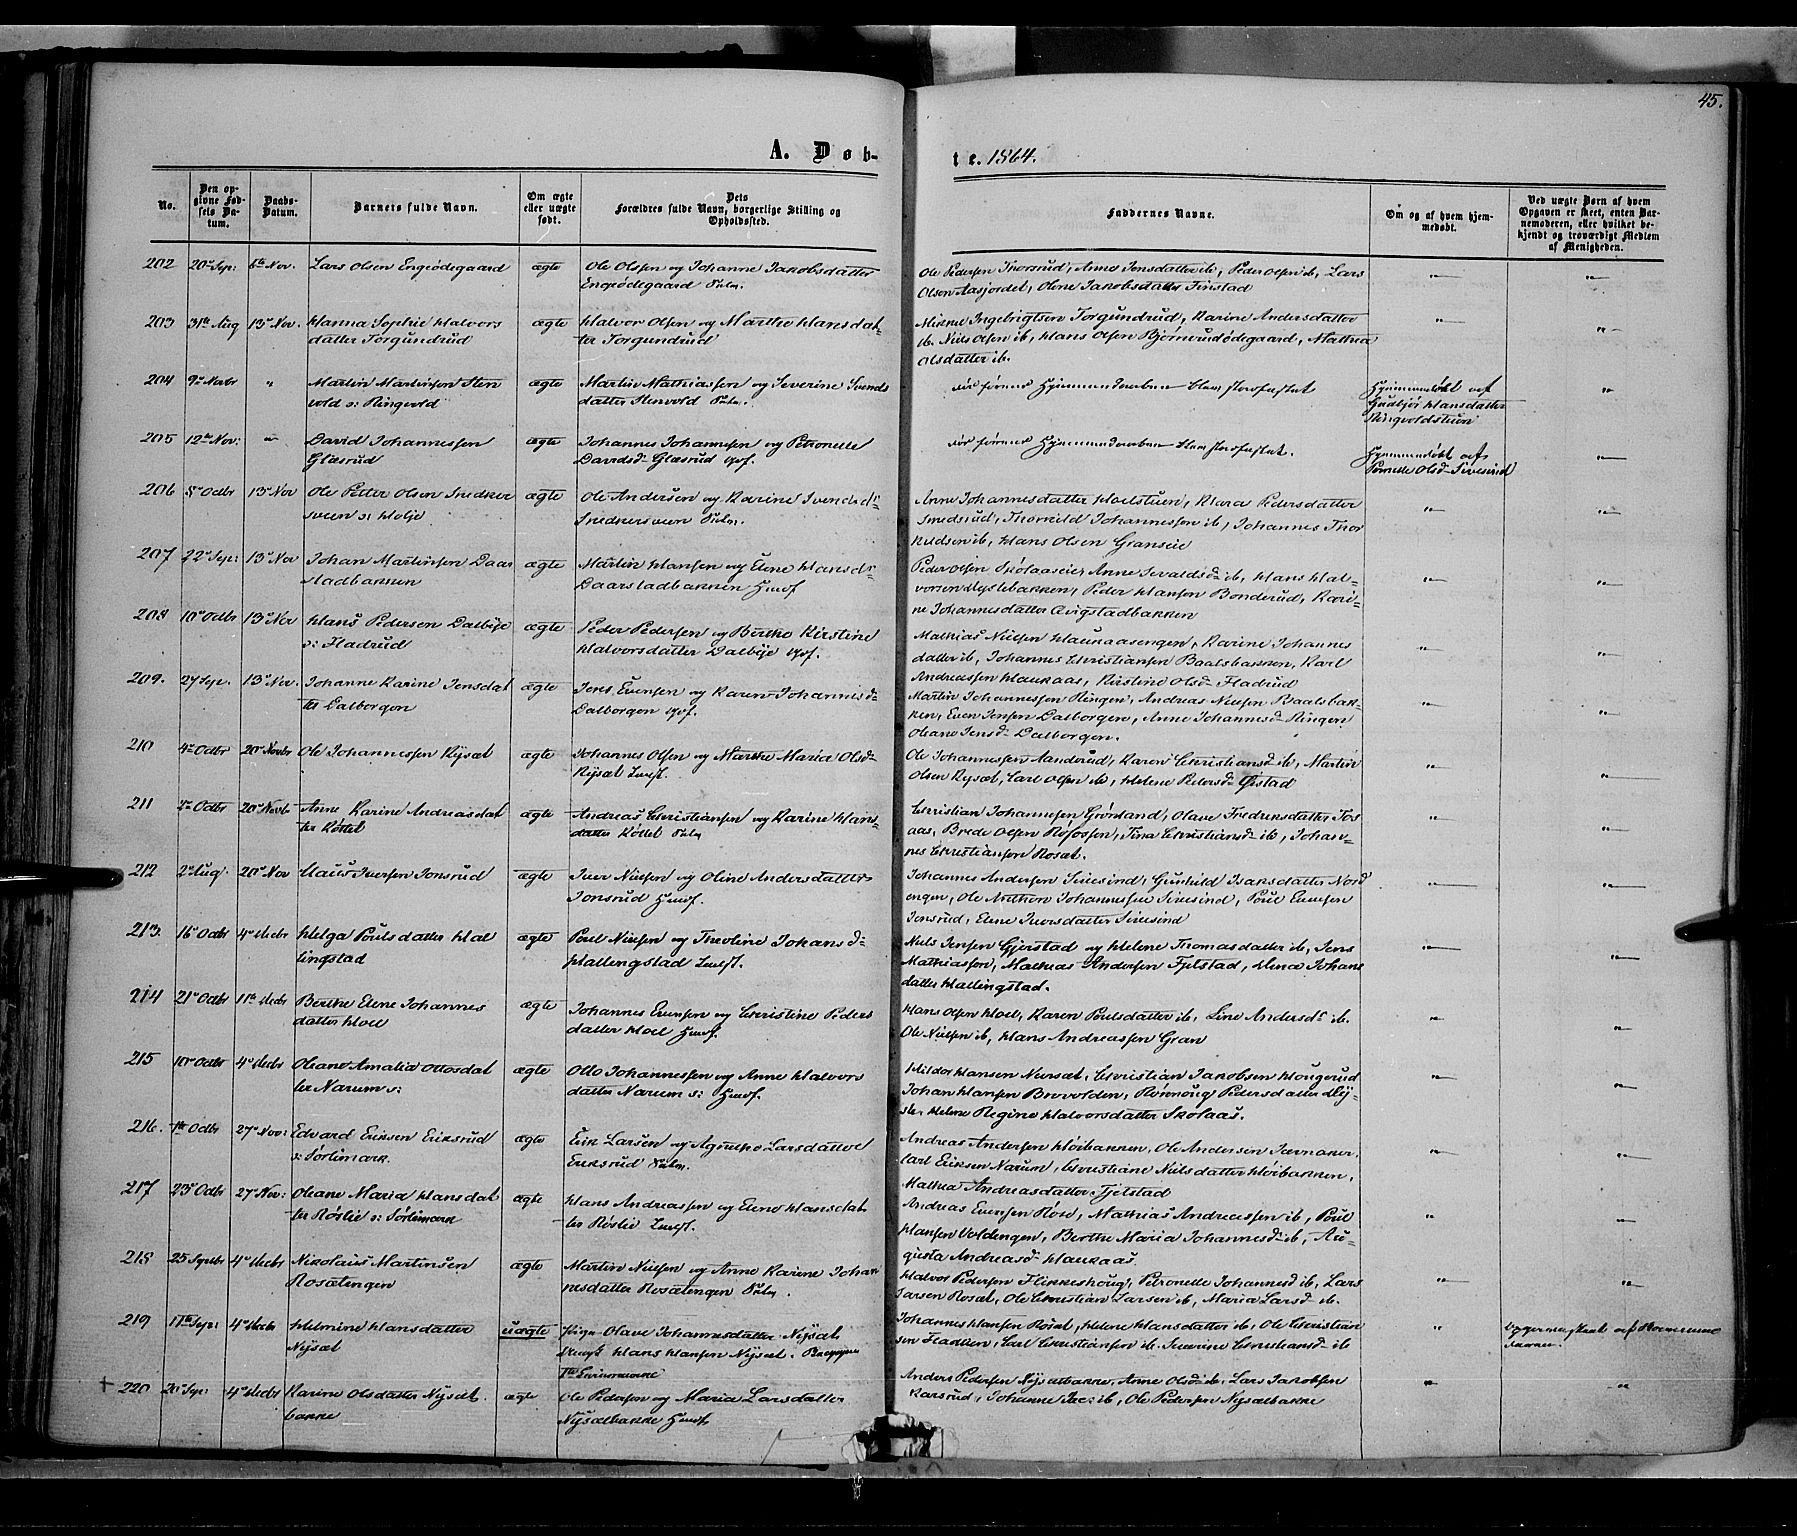 45.
A. Døb-
te. 1864.
No.
Den op-
givne Fød-
sels Da-
tum.
Daabs-
Datum.
Barnets fulde Navn.
Om ægte
eller uægte
født.
Dets
Forældres fulde Navn, borgerlige Stilling og
Opholdssted.
Faddernes Navne.
Om og af hvem hjem-
medøbt.
Ved uægte Børn af hvem
Opgaven er skeet, enten Bar-
nemoderen, eller hvilket be-
kjendt og troværdigt Medlem
af Menigheden.
202 20 Sep: 6te Nov. Lars Olsen Engeødegaard ægte Ole Olsen og Johanne Jakobsdatter
Engeødegaard
Ole Pedersen Thorsrud, Anne Jensdatter ib, Peder Olsen ib, Lars
Olsen Aasjordet, Olene Jakobsdatter Finstad
203 31te Aug 13 Nov. Hanna Sophie Halvors
datter Torgundrud ægte Halvor Olsen og Marthe Hansdat-
ter Torgundrud
Mikkel Ingebrigtsen Torgundrud, Karine Andersdatter
ib. Niels Olsen ib, Hans Olsen Bjørnerudødegaard, Mathea
Olsdatter ib.
204 9 Novbr " Martin Martinsen Sten
vold s: Ringvold ægte Martin Mathiassen og Severine Svends
datter Stenvold
Hjemmedøbt af
Gudbjør Hansdatter
Ringvoldstuen
205 12te Nov: " David Johannessen
Glæsrud ægte Johannes Johannesen og Petronelle
Davidsd. Glæsrud
Hjemmedøbt af
Pernelle Olsd Sivesind
206 5 Octbr 13 Nov Ole Petter Olsen Snedker
sveen s: Hølje ægte Ole Andersen og Karine Svendsdr
Snedkersveen
Anne Johannesdatter Hoelstuen, Klara Pedersdatter
Smedsrud, Thorkild Johannessen ib, Johannes Thor
kildsen ib, Hans Olsen Granseie
207 22 Sep: 13 Nov Johan Martinsen Daar
stadbakken ægte Martin Hansen og Elene Hansdr
Daarstadbakken Huusf
Peder Olsen Skolaaseie, Anne Sevaldsd ib, Hans Hal-
vorsen Hyslebakken, Peder Hansen Bonderud, Kari-
ne Johannesdatter Evigstadbakken
208 10 Octbr 13 Nov Hans Pedersen Dalbye
s: Fladrud ægte Peder Pedersen og Berthe Kirstine
Halvorsdatter Dalbye
Mathias Nielsen Haukaasengen, Karine Johannes
datter ib, Johannes Christiansen Baalsbakken, Karl
Andreassen Haukaas, Kirstine Olsd Fladrud
209. 27 Sep. 13 Nov. Johanne Karine Jensdat
ter Dalborgen ægte Jens Evensen og Karen Johannisd
Dalborgen
Martin Johannessen Ringen, Andreas Nielsen Baalsbak-
ken, Even Jensen Dalborgen, Anne Johannesd Ringen
Oleane Jensd Dalborgen.
210 4 Octbr 20 Novbr Ole Johannessen Rysæt ægte Johannes Olsen og Marthe Maria Olsd
Rysæt
Ole Johannessen Sanderud, Karen Christiansd ib, Martin
Olsen Rysæt, Carl Olsen ib, Helene Petersd Øistad
211 Octbr 20 Novbr Anne Karine Andreasdat
ter Køttet ægte Andreas Christiansen og Karine Hans-
datter Køttet
Christian Johannesen Grønland, Olave Fredriksdatter Fos
aas, Brede Olsen Rofossen, Tina Christiansd ib, Johan-
nes Christiansen Rosæt.
212 2 Aug. 20 Nov Claus Iversen Jonsrud ægte Iver Nielsen og Oline Andersdatter
Jonsrud Huusf.
Johannes Andersen Sivesind, Gunhild Isaksdatter Nord
engen, Ole Anthon Johannessen Sivesind, Poul Evensen
Jonsrud, Elene Iversdatter Sivesind
213. 16 Octbr 4 Decbr Helga Poulsdatter Hal
lingstad ægte Poul Nielsen og Theoline Johansd
Hallingstad
Niels Jensen Gjerstad og Helene Thomasdatter ib, Jens
Mathiassen, Mathias Andersen Fjelstad, Dina Johans
datter Hallingstad.
214 21 Octbr 11te Decbr Berthe Elene Johannes
datter Hoel ægte Johannes Evensen og Christine Peders
datter Hoel Huusf.
Hans Olsen Hoel, Karen Poulsdatter ib, Line Andersdr ib.
Ole Nielsen ib, Hans Andreassen Gran
215 10 Octbr 4 Decbr Oleane Amalia Ottosdat
ter Narum s: ægte Otto Johannessen og Anne Halvors
datter Narum s: Huusf.
Hildor Hansen Nersæt, Christian Jakobsen Hougerud
Johan Hansen Brovolden, Rønnoug Pedersdatter
Helene Regine Halvorsdatter Skolaas.
216. 1te Octbr 27 Nov: Edvard Eriksen Eriksrud
s: Sørlimark. ægte Erik Larsen og Agnethe Larsdatter
Eriksrud
Andreas Andersen Høibakken, Ole Andersen Jevnaker,
Carl Eriksen Narum, Christiane Nielsdatter Høibakken,
Mathea Andreasdatter Fjelstad
217 23 Octbr 27 Nov: Oleane Maria Hansdat
ter Røslie s: Sørlimark ægte Hans Andreassen og Elene Hansdat
ter Røslie
Andreas Evensen Røse, Mathias Andreassen ib, Poul
Hansen Voldengen, Berthe Maria Johannesd ib, Au-
gusta Andreasd Haukaas.
218 25 Septbr 4 Decbr Nikolaus Martinsen
Rosætengen ægte Martin Nielsen og Anne Karine Johan
nesdatter Rosætengen
Halvor Pedersen Flikkeshoug, Petronelle Johannesd ib, Lars
Larsen Rosæt, Ole Christian Larsen ib, Maria Larsd ib.
219 11te Sep: 4 Decbr Helmine Hansdatter
Nysæt uægte Pige Olave Johannesdatter Nysæt
Ungk Hans Hansen Nysæt.
Johannes Hansen Røsæt, Helene Hansdatter ib, Ole Christian
sen Fladken, Carl Christiansen ib. Severine Christiansd ib
220 20 Sep: 4 Decbr Karine Olsdatter Nysæt
bakke ægte Ole Pedersen og Maria Larsdatter
Nysætbakke Huusf
Anders Pedersen Nysætbakke, Anne Olsd ib, Lars Jakobsen
Karsrud, Johanne ib, Ole Pedersen Nysætbakke